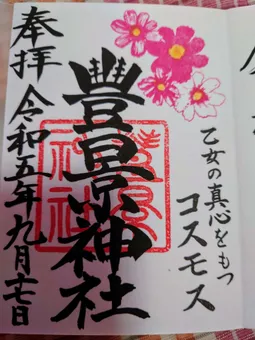 乙女の真心をもつ
コスモス
豐景神社
奉拝 令和五年九月十七日